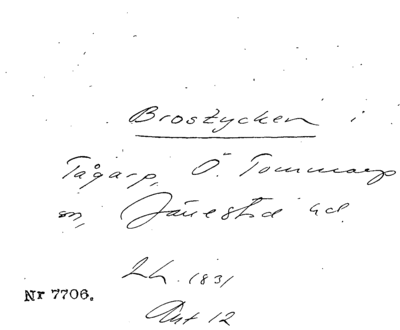 Brostycken i
Tågarp, Ö. Tommarp
sn, Järrestad hd.
Lh. 1831
Nr 7706.
Akt 12